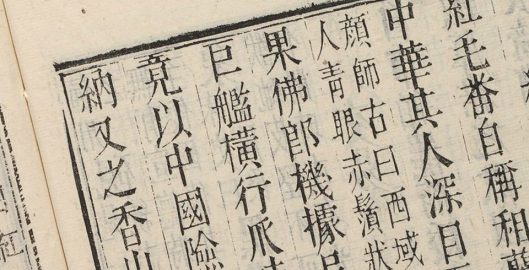 紅毛番自稱和
中華其人深目
顔師古曰西域
人青眼赤鬚狀
果佛郎機據
巨艦橫行爪
竟以中國險
納又之香山